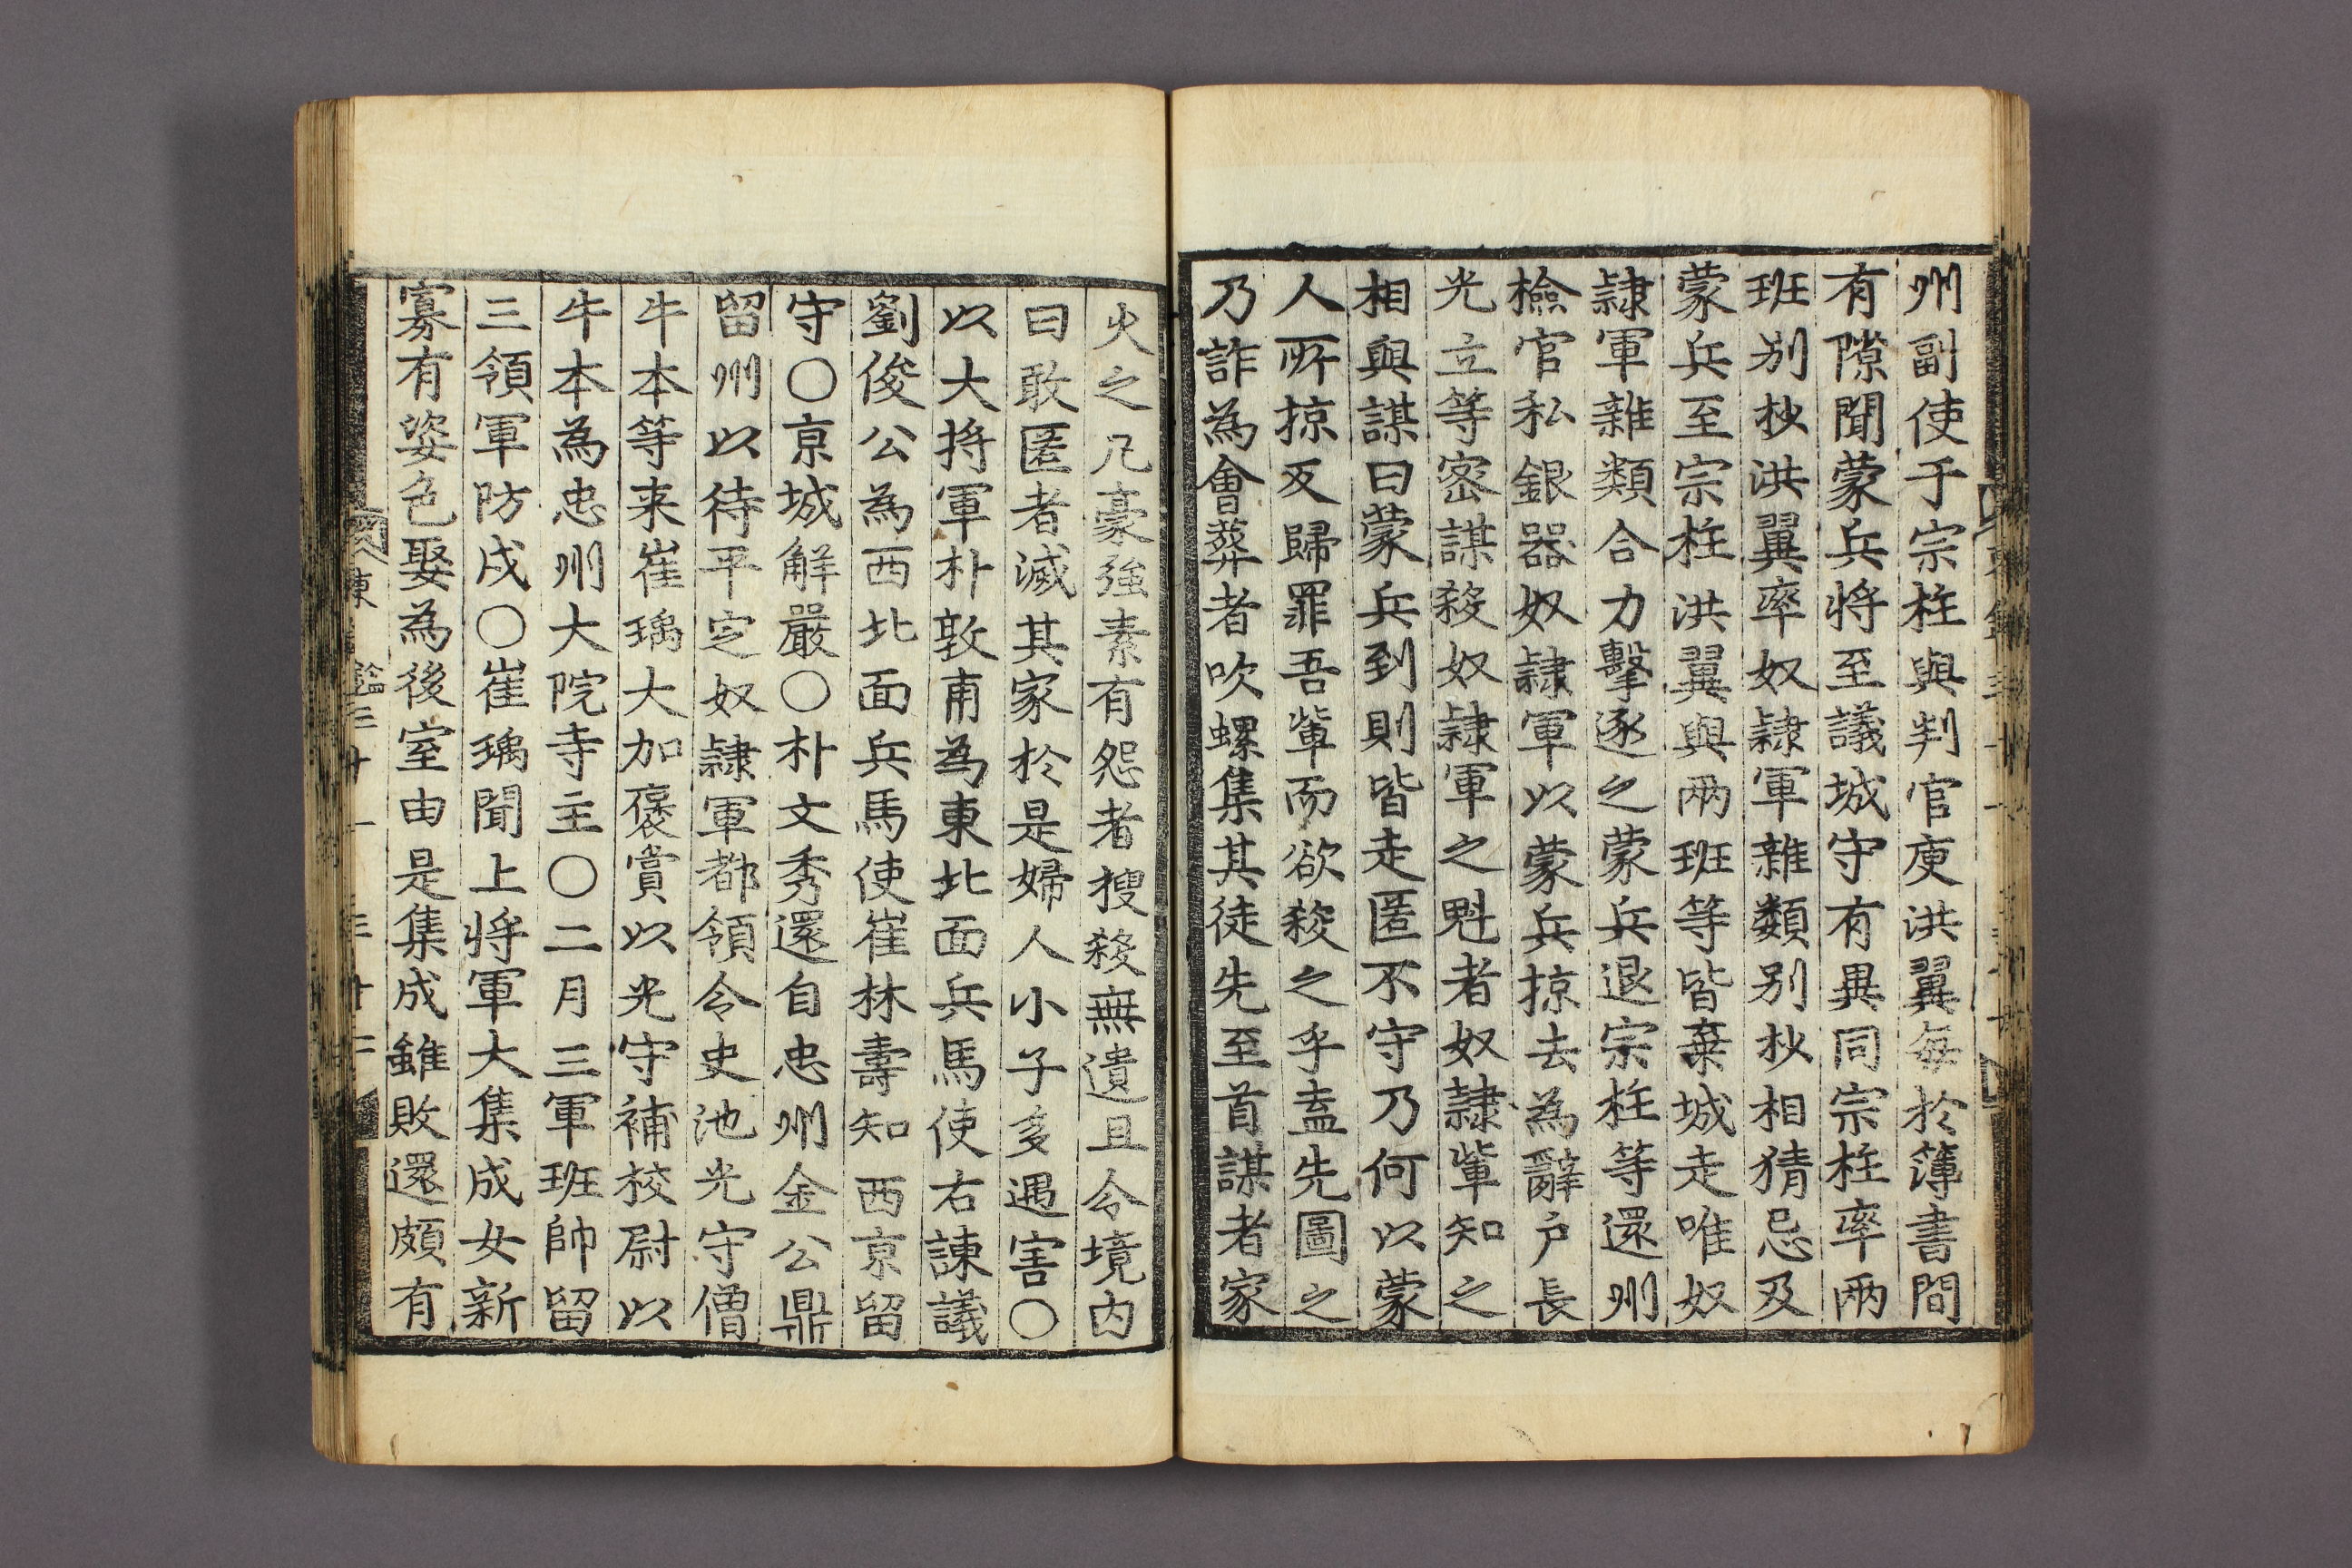 州副使于宗柱與判官庾洪翼每於簿書間
有隙聞蒙兵將至議城守有異同宗柱率兩
班别抄洪翼率奴隷軍雜類别抄相猜忌及
蒙兵至宗柱洪翼與兩班等皆棄城走唯奴
隷軍雜類合力擊逐之蒙兵退宗柱等還州
檢官私銀器奴隷軍以蒙兵掠去為辭户長
光立等密謀殺奴隷軍之魁者奴隷軰知之
相與謀曰蒙兵到則皆走匿不守乃何以蒙
人所掠反歸罪吾軰而欲殺之乎盍先圖之
乃詐為會葬者吹螺集其徒先至首謀者家
火之凡豪強素有怨者搜殺無遺且令境内
曰敢匿者滅其家於是婦人小子多遇害〇
以大將軍朴敦甫為東北面兵馬使右諫議
劉俊公為西北面兵馬使崔林壽知西京留
守〇京城解嚴〇朴文秀還自忠州金公鼎
留州以待平定奴隷軍都領令史池光守僧
牛本等来崔瑀大加褒賞以光守補校尉以
牛本為忠州大院寺主〇二月三軍班師留
三領軍防戍〇崔瑀聞上將軍大集成女新
寡有姿色娶為後室由是集成雖敗還頗有
東 鑑三十一 三十二